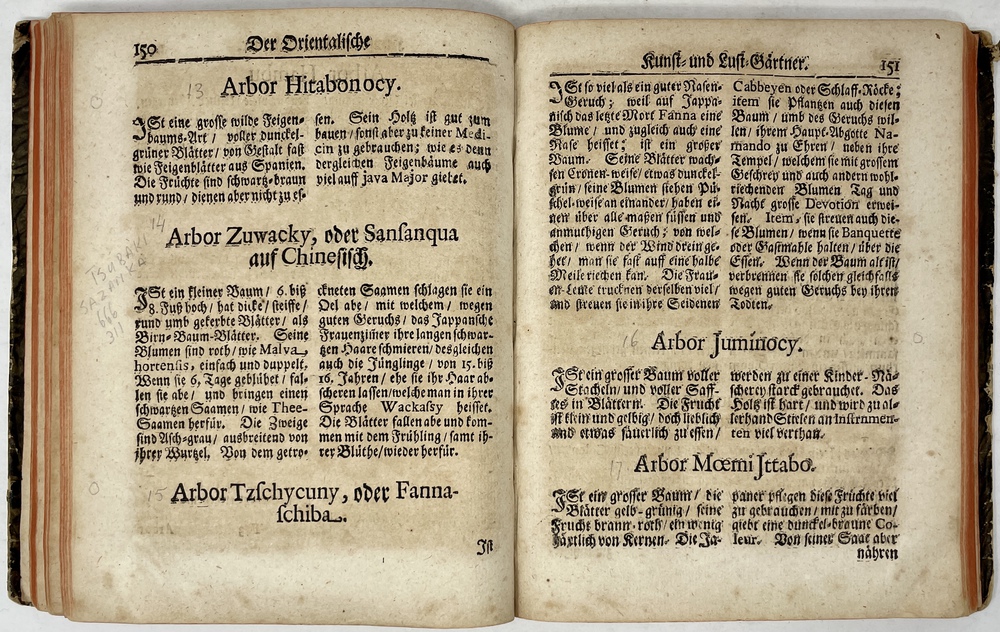 150
Der Orientalische
13
Arbor Hitabonocy.
ISt eine grosse wilde Feigen-
baums-Art / voller dunckel-
grüner Blätter / von Gestalt fast
wie Feigenblätter aus Spanien.
Die Früchte sind schwartz-braun
und rund / dienen aber nicht zu es-
sen. Sein Holtz ist gut zum
bauen / sonst aber zu keiner Medi-
cin zu gebrauchen; wie es denn
dergleichen Feigenbäume auch
viel auff java Major giebet.
14
Arbor Zuwacky, oder Sansanqua
auf Chinesisch.
TSUBAKI
SAZANKA
666
311
ISt ein kleiner Baum / 6. biß
8. Fuß hoch / hat dicke / steiffe /
rund umb gekerbte Blätter / als
Birn-Baum-Blätter. Seine
Blumen sind roth / wie Malva
hortensis, einfach und duppelt,
Wenn sie 6, Tage geblühet / fal-
len sie abe / und bringen einen
schwartzen Saamen / wie Thee-
Saamen herfür. Die Zweige
sind Asch-grau / ausbreitend von
ihrer Wurtzel. Von dem getro-
ckneten Saamen schlagen sie ein
Oel abe / mit welchem / wegen
guten Geruchs / das Jappansche
Frauenzimer ihre langen schwar-
tzen Haare schmieren / desgleichen
auch die Jünglinge / von 15. biß
16. Jahren / ehe sie ihr Haar ab-
scheren lassen / welche man in ihrer
Sprache Wackassy heisset.
Die Blätter fallen abe und kom-
men mit dem Frühling / samt ih-
rer Blüthe / wieder herfür.
15
Arbor Tzschycuny, oder Fanna-
schiba.
Ist
Kunst- und Lust-Gärtner.
151
ISt so viel als ein guter Nasen-
Geruch; weil auf Jappa-
nisch das letzte Wort Fanna eine
Blume / und zugleich auch eine
Nase heisset; ist ein großer
Baum. Seine Blätter wach-
sen Cronen-weise / etwas dunckel-
grün / seine Blumen stehen Pü-
schel-weise an einander / haben ei-
nen über alle maßen süssen und
anmuthigen Geruch; von wel-
chen / wenn der Wind drein ge-
het / man sie fast auf eine halbe
Meile riechen kan. Die Frau-
en-Leute trucknen derselben viel /
und streuen sie in ihre Seidenen
Cabbeyen oder Schlaff-Röcke;
item sie Pflantzen auch diesen
Baum / umb des Geruchs wil-
len / ihrem Haupt-Abgotte Na-
mando zu Ehren / neben ihre
Tempel / welchem sie mit grossem
Geschrey und auch andern wohl-
riechenden Blumen Tag und
Nacht grosse Devotion erwei-
sen. Item, sie streuen auch die-
se Blumen / wenn sie Banquette
oder Gastmahle halten / über die
Essen. Wenn der Baum alt ist /
verbrennen sie solchen gleichfalls
wegen guten Geruchs bey ihren
Todten.
16
Arbor Juminocy.
ISt ein grosser Baum voller
Stacheln / und voller Saff-
tes in Blättern. Die Frucht
ist klein und gelbig / doch lieblich
und etwas säuerlich zu essen /
werden zu einer Kinder-Nä-
scherey starck gebrauchet. Das
Holtz ist hart / und wird zu al-
lerhand Stielen an Instrumen-
ten viel verthan.
17
Arbor Mœmi Jttabo.
ISt ein grosser Baum / die
Blätter gelb-grünig / seine
Frucht braun-roth / ein wenig
härtlich von Kernen. Die Ja-
paner pflegen diese Früchte viel
zu gebrauchen / mit zu färben /
giebt eine dunckel-braune Co-
leur. Von seiner Saat aber
nähren